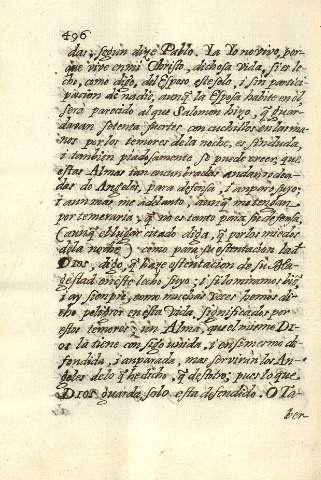 496
das, según dize Pablo. Ya Yo no vivo, por-
que vive en mi Christo, dichosa Vida, si er le-
cho, como digo, del Esposo este solo, i sin partici-
pacion de nadie, aunq̃ la Esposa habite en el,
sera parecido al que Salomon hizo, q̃ guar-
davan setenta fuertes con cuchillos en las ma-
nos por los temores de la noche, es sin duda,
i tambien piadosamente se puede creer, que
estas Almas tan encumbradas andan rodea-
das de Angeles, para defensa, i amparo suyo;
i aun mas me adelanto, aunq̃ me tengan
por temeraria, q̃ no es tanto para su defensa,
(aunq̃ el lugar citado diga, q̃ por los miedos
de la noche) como para su ostentacion la de
DIOS, digo, q̃ haze ostentacion de su Ma-
gestad en este lecho suyo; i si lo miramos biẽ,
i ay siempre, como muchas Vezes hemos di-
cho peligros en esta Vida, significados por
estos temores; un Alma, que el mismo DI-
OS la tiene con sigo unida, i en si mesmo di-
fendida, i amparada, mas serviran los An-
geles de lo q̃ he dicho, q̃ de estotro; pues lo que
DIOS guarda, solo esta difendido. O Ta-
ber-